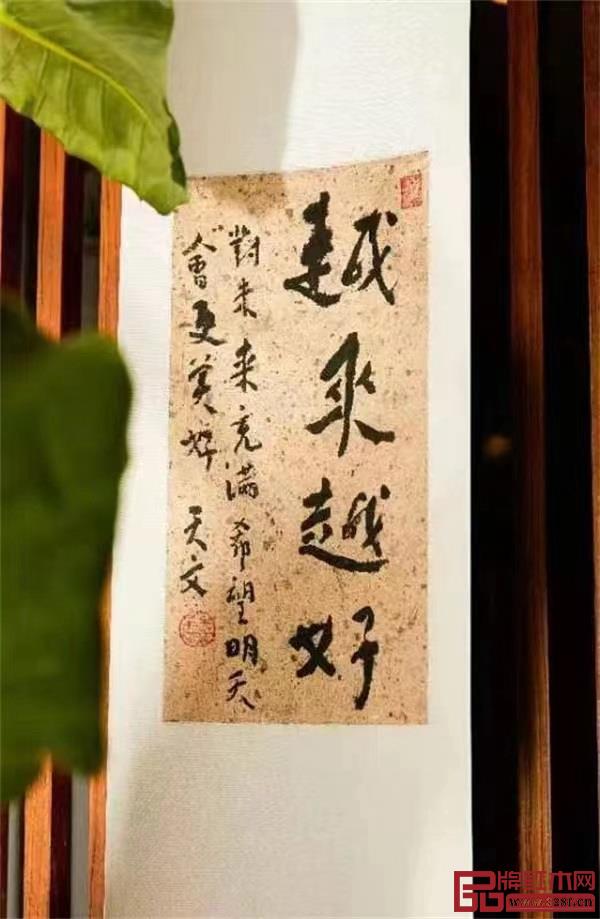 越來越好
對未来充滿希望明天
會更美好
天文
品牌红木网
www.328f.cn